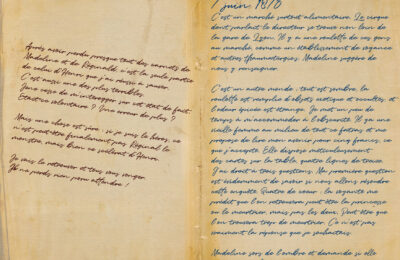 Après avoir perdu presque tout des carnets de
Madeline et de Reginald, c'est la seule partie
de celui d'Henri que j'ai réussi à sauver.
C'est aussi un des plus terribles.
J'ne cesse de m'interroger sur cet état de fait.
Était-ce volontaire ? Une erreur de plus ?
Mais une chose est sûre : si je suis le héros, ce
n'est peut-être finalement pas Reginald le
monstre, mais bien ce scélérat d'Henri.
Je vais le retrouver et tous vous venger.
J'n'ai perdu rien pour attendre !
juin 1878
C'est un marché plutôt alimentaire. Le cirque
dont parlait le directeur se trouve non loin de
la gare de Lyon. Il y a une roulotte de ces gens
au marché, comme un établissement de voyance
et autres thaumaturgies. Madeline suggère de
nous y renseigner.
C'est un autre monde : tout est sombre, la
roulotte est remplie d'objets antiques et occultes, et
l'odeur épicée est étrange. Je mets un peu de
temps à m'accommoder à l'obscurité. Il y a une
vieille femme au milieu de tout ce fatras et me
propose de lire mon avenir pour cinq francs, ce
que j'accepte. Elle dispose méticuleusement
des cartes sur la table, quatre lignes de trois.
J'ai droit à trois questions. Ma première question
est évidemment de savoir si nous allons résoudre
cette enquête. Quatre de cœur : la voyante me
prédit que l'on retrouvera peut-être la princesse
ou le meurtrier, mais pas les deux. Peut-être que
l'on trouvera trop de meurtrier. Ce n'est pas
vraiment la réponse que je souhaitais.
Madeline sort de l'ombre et demande si elle